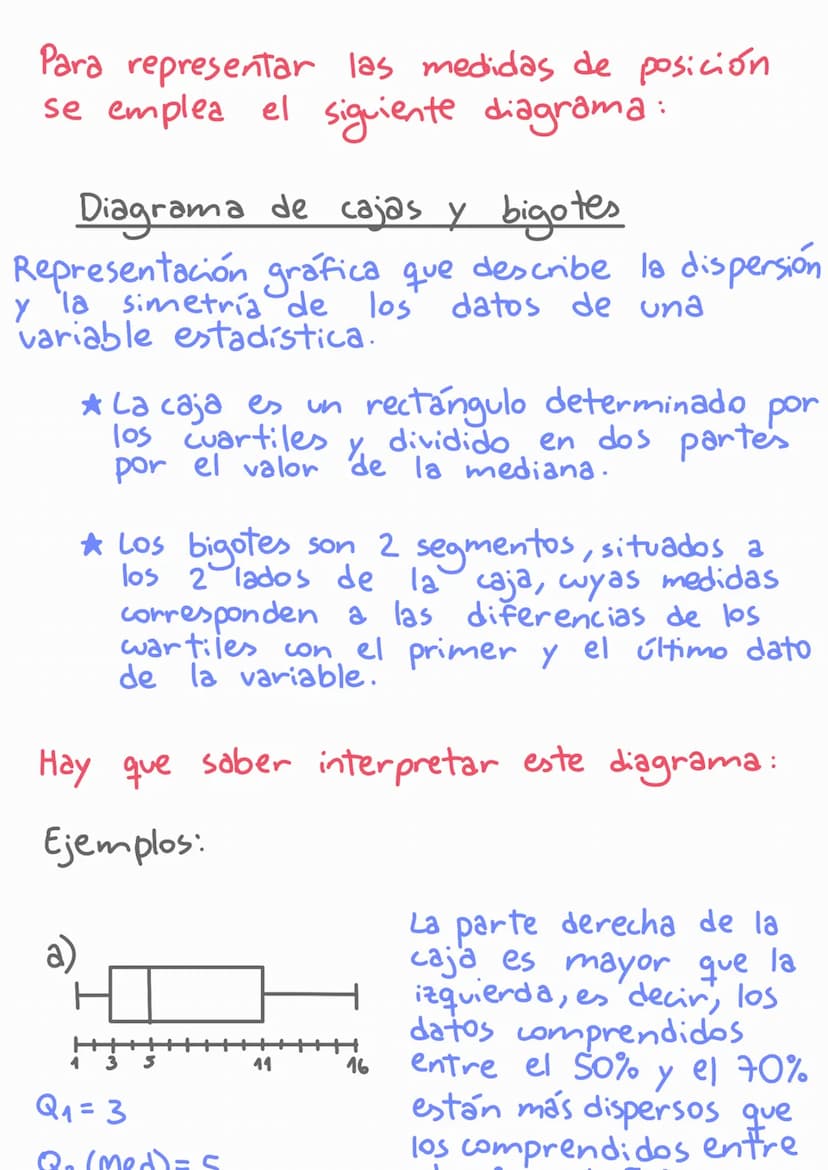 Para representar las medidas de posición
se emplea el siguiente diagrama:
Diagrama de cajas y bigotes
Representación gráfica que describe la dispersión
y la simetría de los datos de una
variable estadística.
★ La caja es un rectángulo determinado por
los cuartiles y dividido en dos partes
por el valor de la mediana.
★ Los bigotes son 2 segmentos, situados a
los 2 lados de la caja, cuyas medidas
corresponden a las diferencias de los
cuartiles con el primer y el último dato
de la variable.
Hay que saber interpretar este diagrama:
Ejemplos:
a)
1 3 5 11 16
Q1 = 3
Q2 (Med) = 5
La parte derecha de la
caja es mayor que la
izquierda, es decir, los
datos comprendidos
entre el 50% y el 70%
están más dispersos que
los comprendidos entre